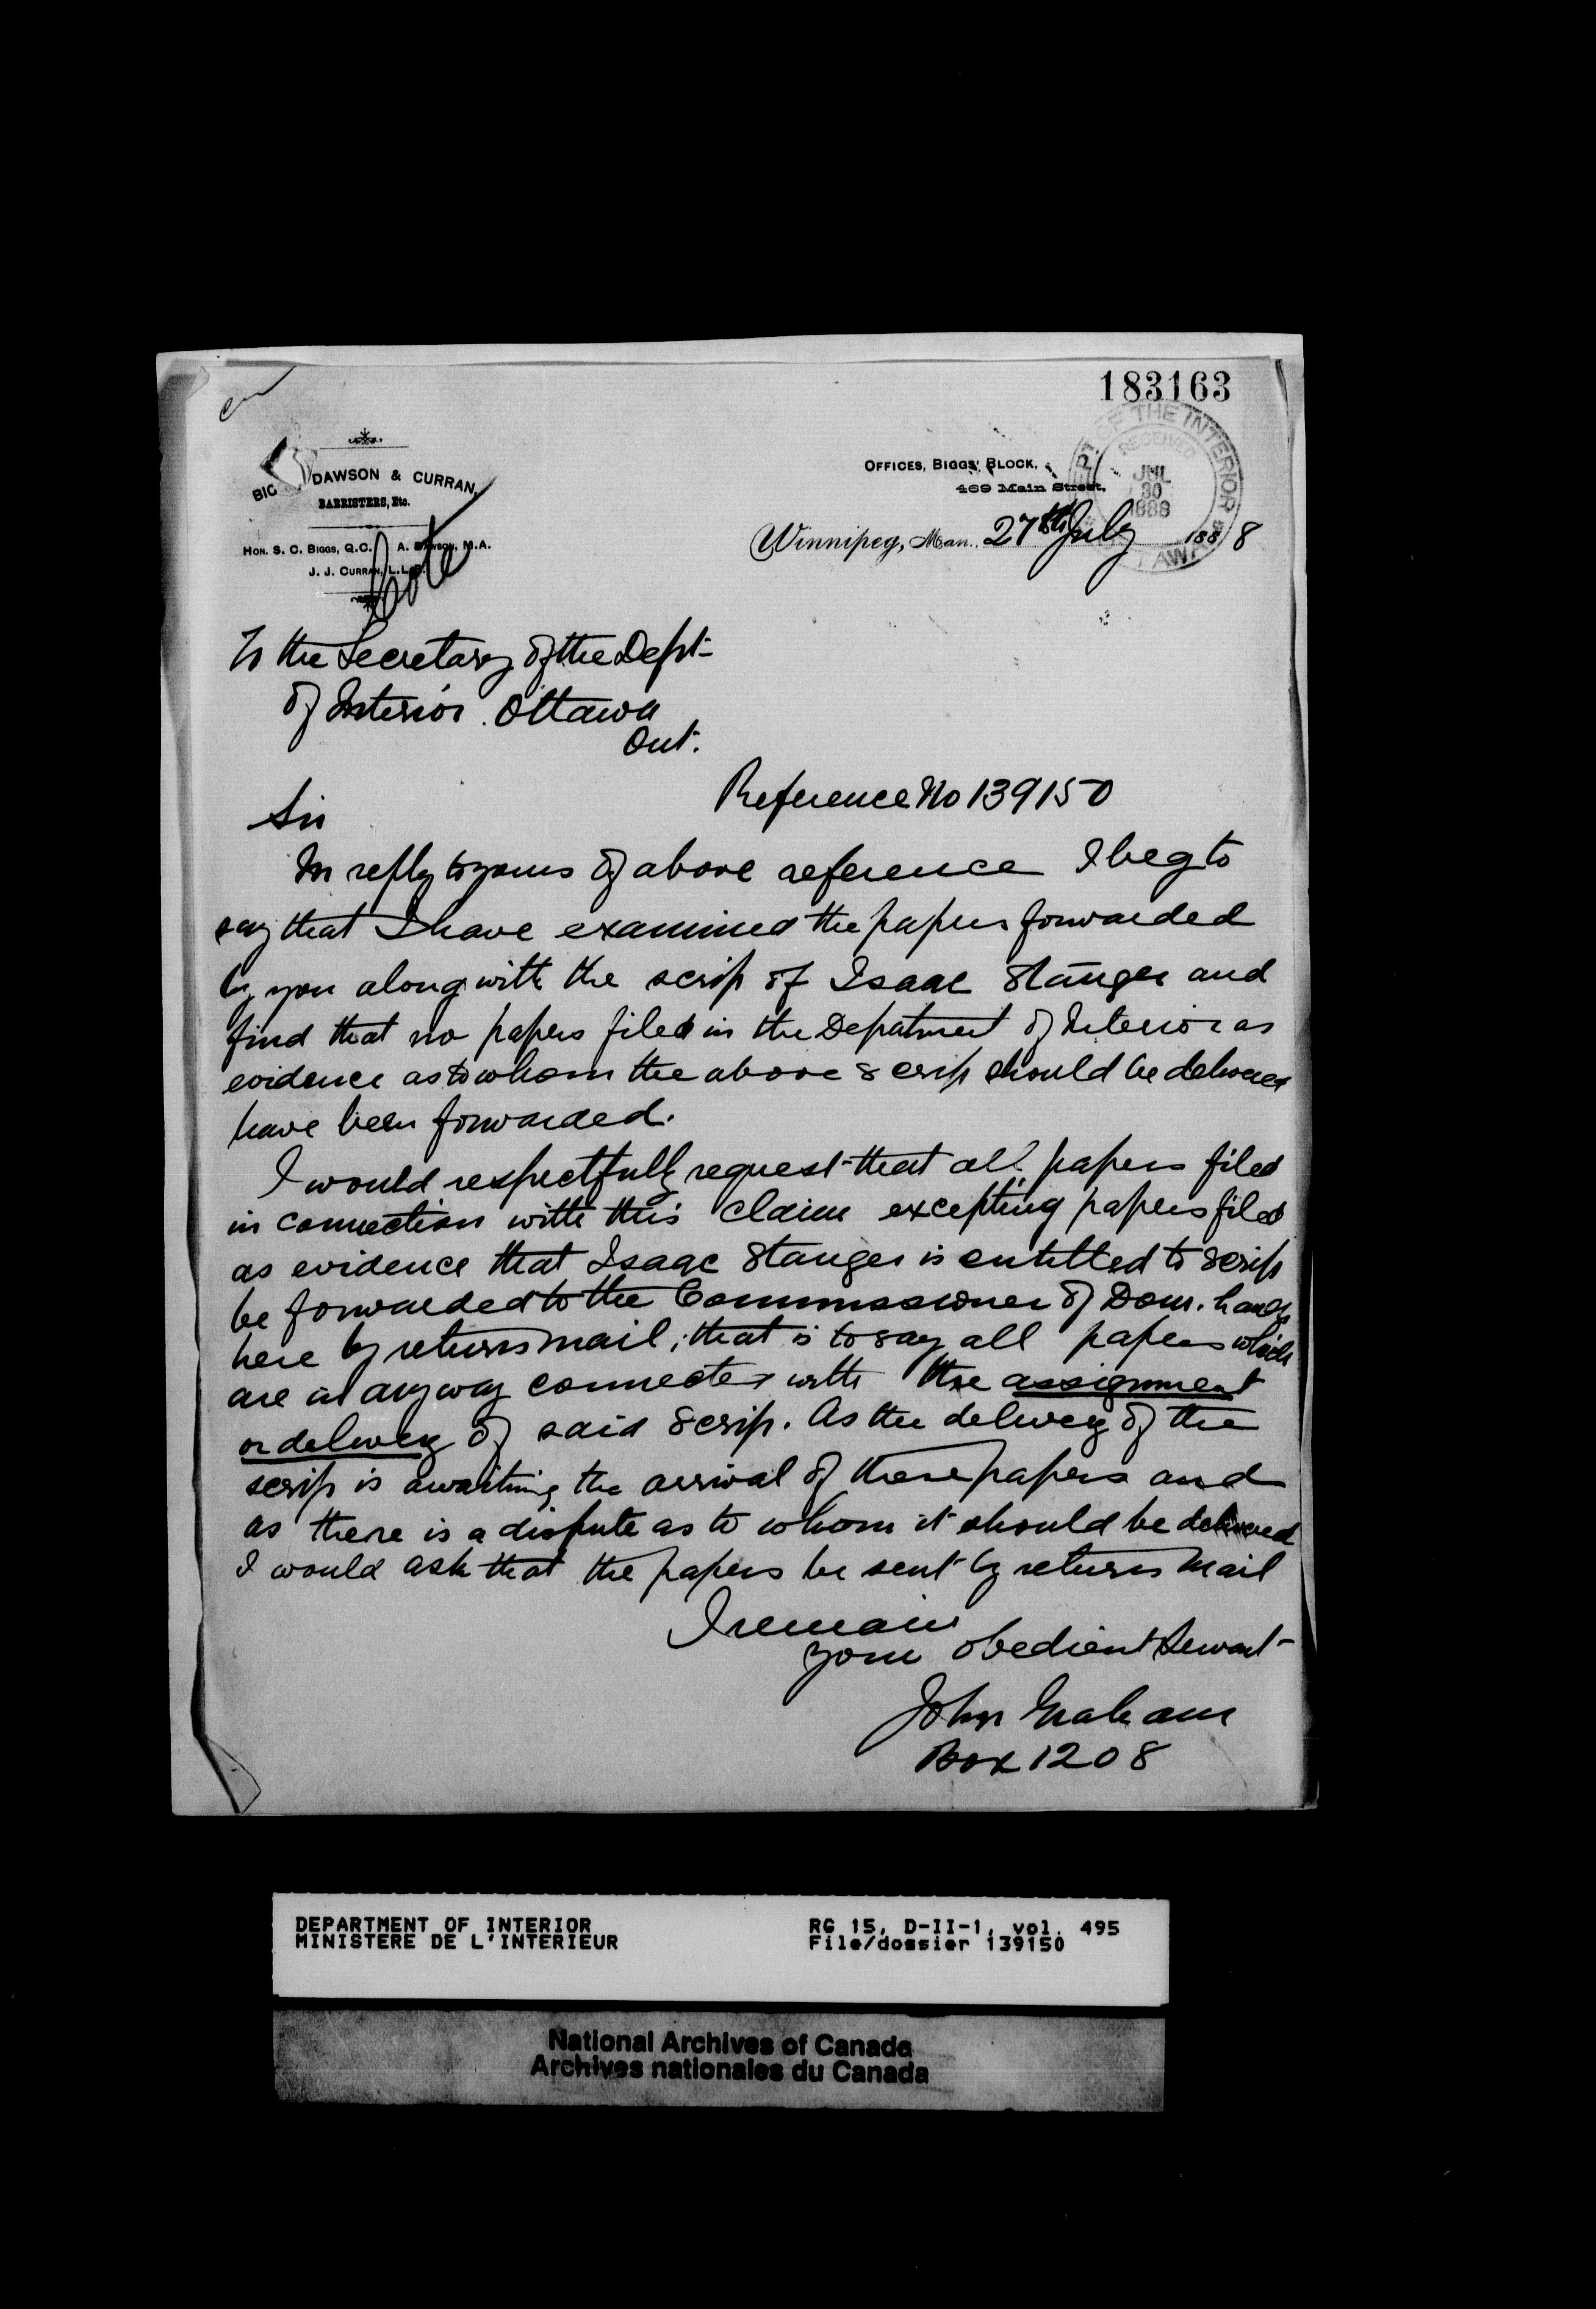 183163
DEPT OF THE INTERIOR
RECEIVED
JUL
30
1888
OTTAWA
BIG DAWSON & CURRAN,
BARRISTERS, Etc.
HON. S. C. BIGGS, Q.C. A. DAWSON, M.A.
J. J. CURRAN, L.L.B.
Cote
OFFICES, BIGGS' BLOCK,
469 Main Street,
Winnipeg, Man., 27th July 1888
To the Secretary of the Dept
of Interior. Ottawa
Ont.
Reference No 139150
Sir
In reply to yours of above reference I beg to
say that I have examined the papers forwarded
by you along with the scrip of Isaac Stanger and
find that no papers filed in the Depatment of Interior as
evidence as to whom the above scrip should be delivered
have been forwarded.
I would respectfully request that all papers filed
in connection with this claim excepting papers filed
as evidence that Isaac Stanger is entitled to scrip
be forwarded to the Commissioner of Dom. Lands
here by return mail; that is to say all papers which
are in anyway connected with the assignment
or delivery of said scrip. As the delivery of the
scrip is awaiting the arrival of these papers and
as there is a dispute as to whom it should be delivered
I would ask that the papers be sent by return mail
I remain
your obedient Servant
John Graham
Box 1208
DEPARTMENT OF INTERIOR RG 15, D-II-1, vol. 495
MINISTERE DE L'INTERIEUR File/dossier 139150
National Archives of Canada
Archives nationales du Canada